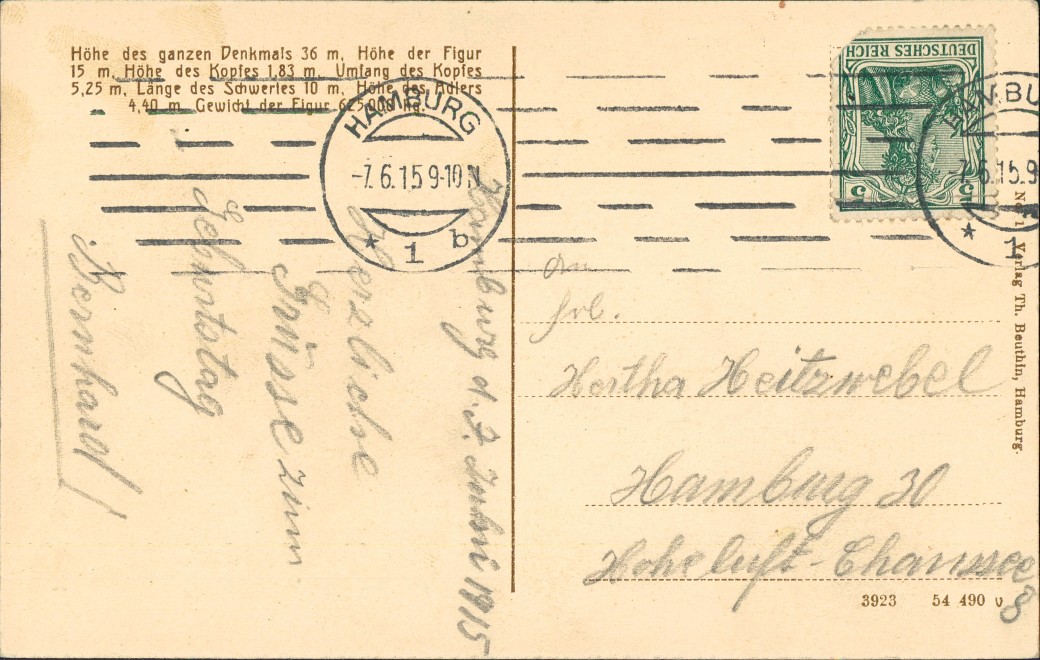 Höhe des ganzen Denkmals 36 m, Höhe der Figur
15 m, Höhe des Kopfes 1,83 m. Umfang des Kopfes
5,25 m, Länge des Schwertes 10 m, Höhe des Adlers
4,40 m. Gewicht der Figur 625,000 kg.
HAMBURG
-7.6.15 9-10 N
* 1 b
DEUTSCHES REICH
5 5
HAMBU
7.6.15.9
* 1
Hamburg d. 7. Juni 1915
Herzliche
Grüsse zum
Geburtstag
Bernhard!
An
Frl.
Hertha Heitzwebel
Hamburg 30
Hoheluft-Chaussee
8
Verlag Th. Beuthin, Hamburg.
3923 54 490 v